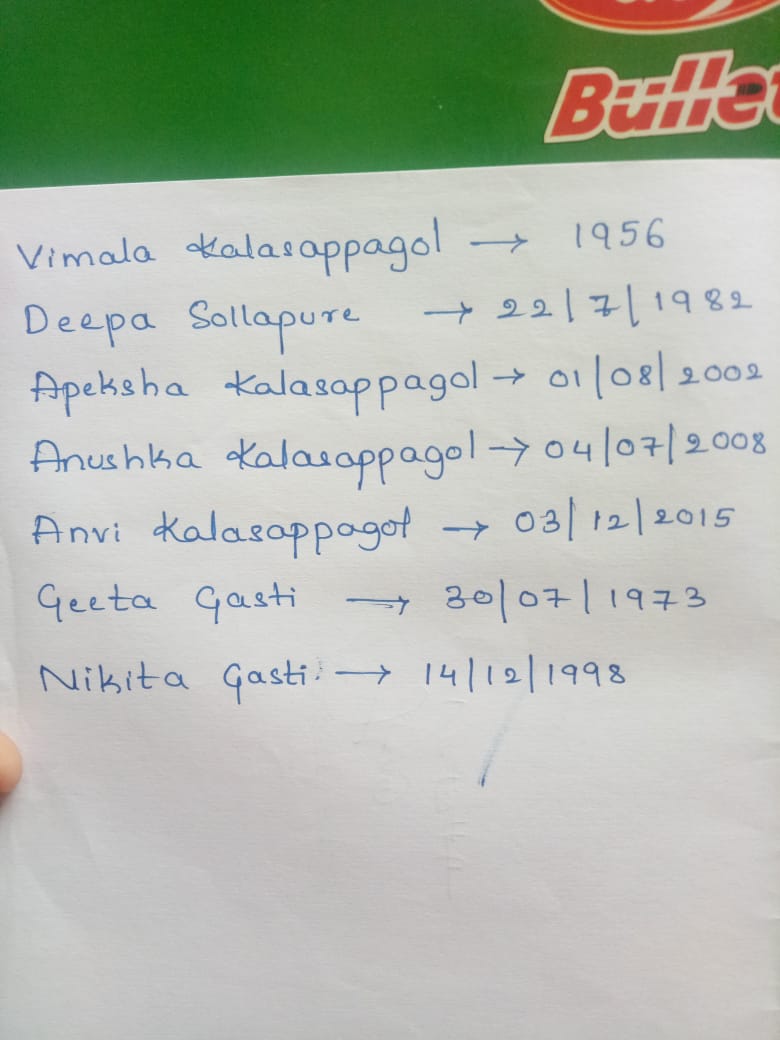 Bullet
Vimala Kalasappagol → 1956
Deepa Sollapure → 22/7/1982
Apeksha Kalasappagol → 01/08/2002
Anushka Kalasappagol → 04/07/2008
Anvi Kalasappagol → 03/12/2015
Geeta Gasti → 30/07/1973
Nikita Gasti → 14/12/1998